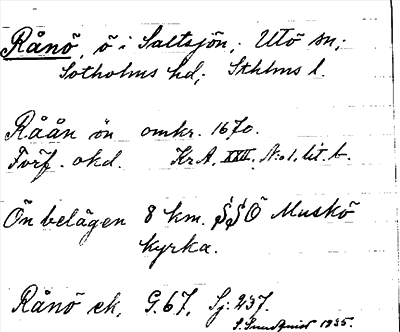 Rånö, ö i Saltsjön; Utö sn;
Sotholms hd; Sthlms l.
Råån ön omkr. 1670.
Förf. okd. KrA. XXII, N:o 1, lit. b.
Ön belägen 8 km. SSO Muskö
kyrka.
Rånö ek, G. 67, Sj: 237.
S. Sundqvist 1935.